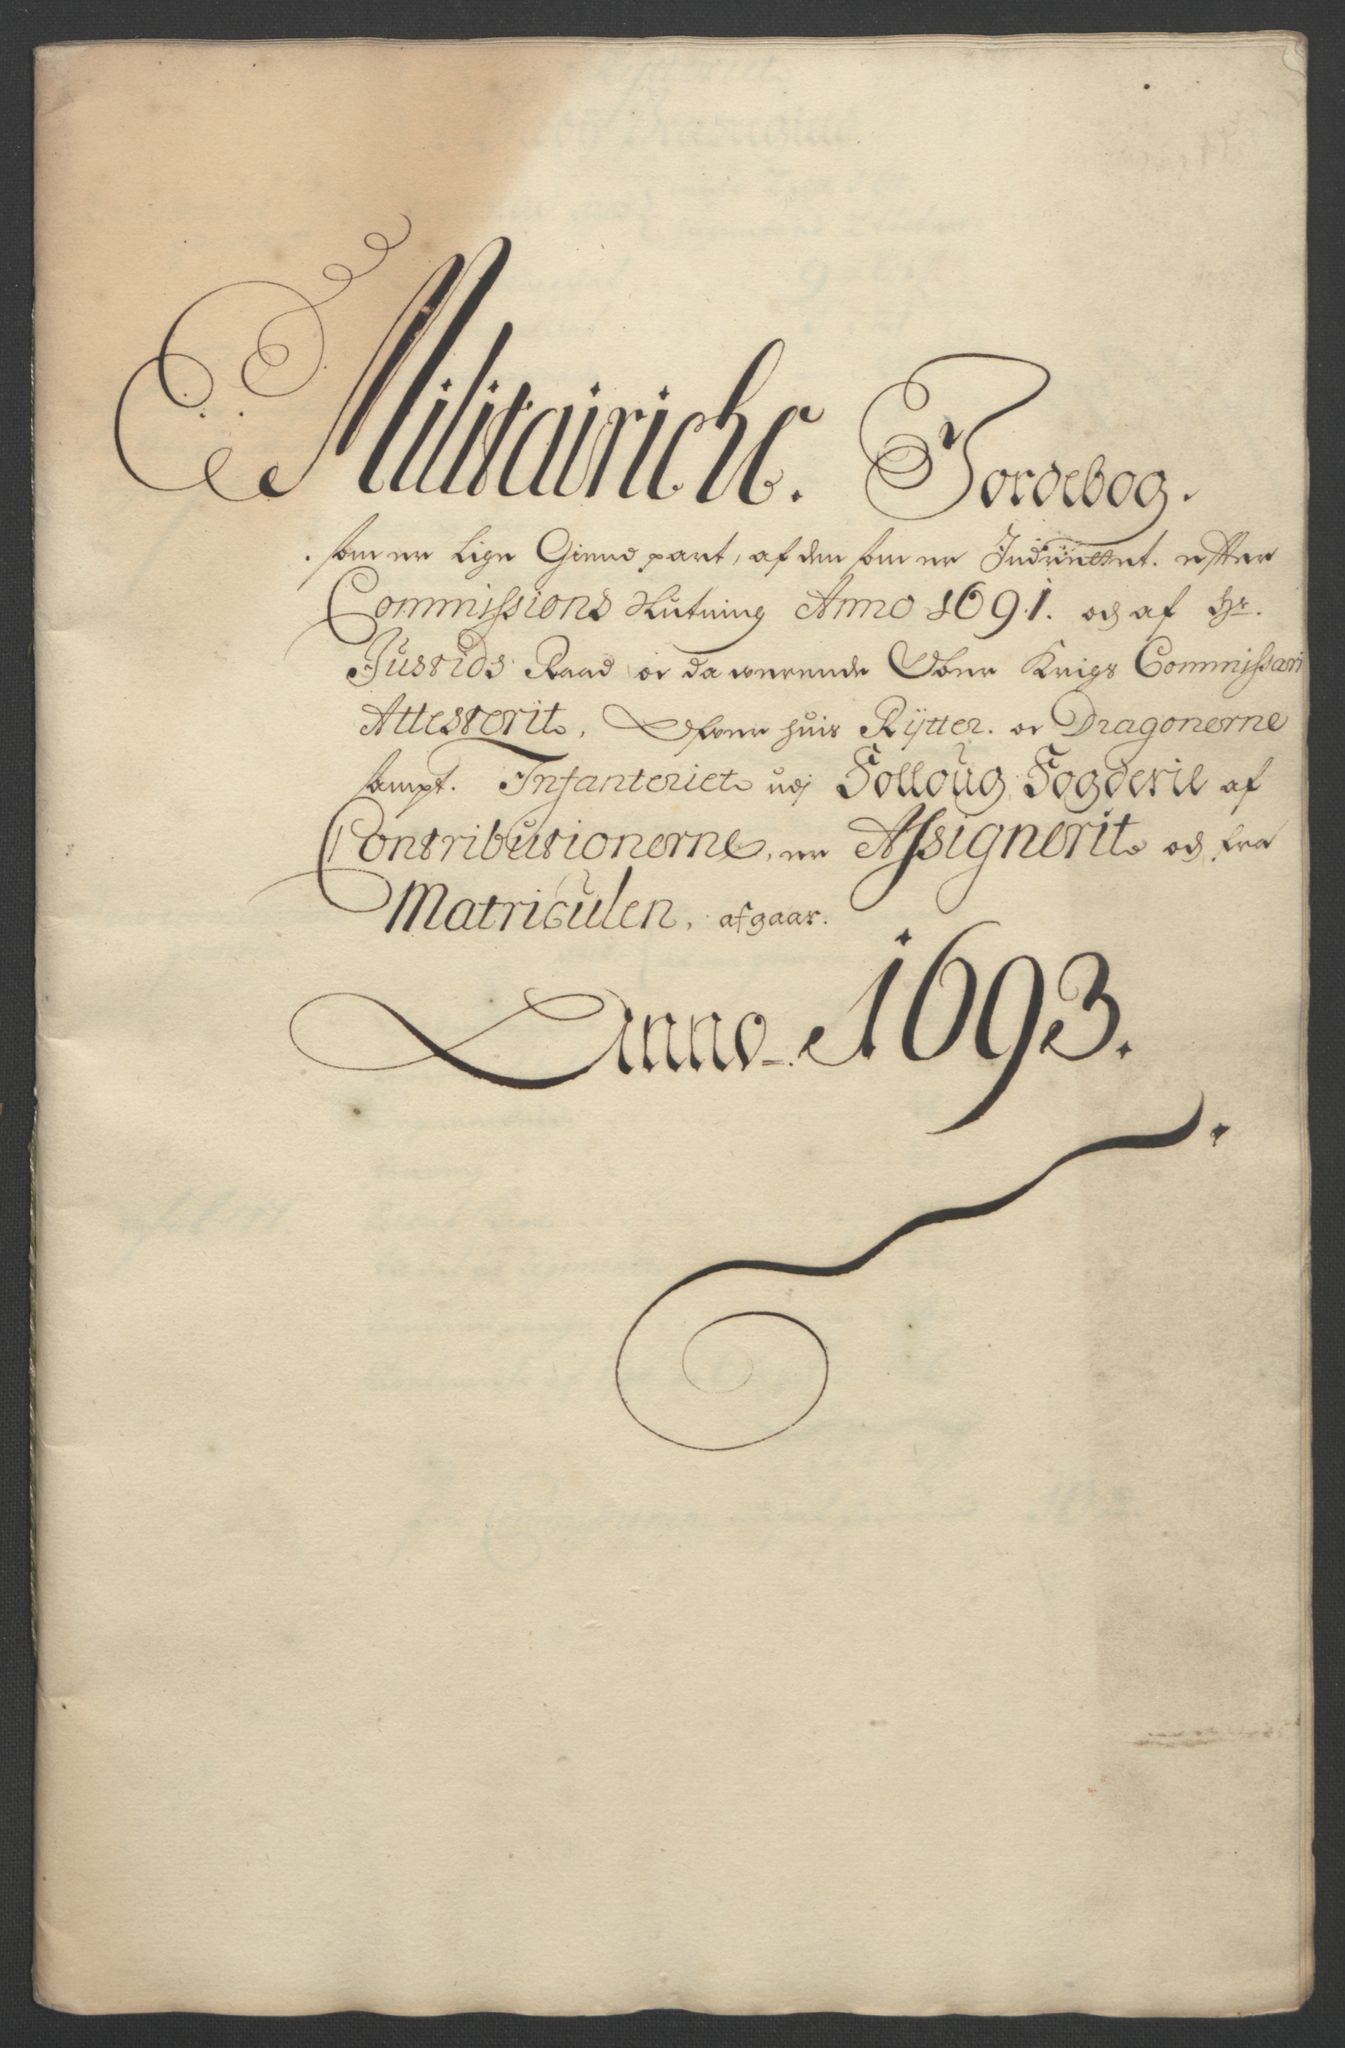 Militairiche. Jordebog.
som er Lige Giendpart, af den som er Indrettet. efter
Commissions Slutning Anno 1691. och af Hr.
Justids Raad oc da werende Ober Krigs Commissari
Attesterit, Ofver huis Rÿtter. oc Dragonerne
sampt. Infanteriet udj Folloug Fogderie af
Contributionerne, er Assignerit och fra
Matriculen, afgaar.
Anno. 1693.